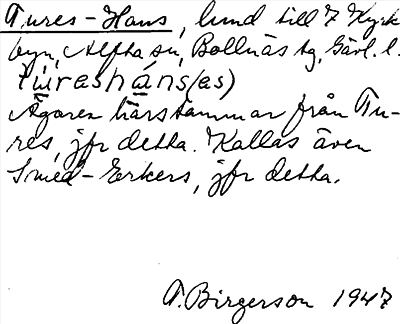 Tures-Hans, lund till 7 Kyrk
byn, Alfta sn, Bollnäs tg, Gävl. l.
tùrashán̄s(as)
Ägaren härstammar från Tu-
res, jfr detta. Kallas även
Smed-Erkers, jfr detta.
T. Birgerson 1947